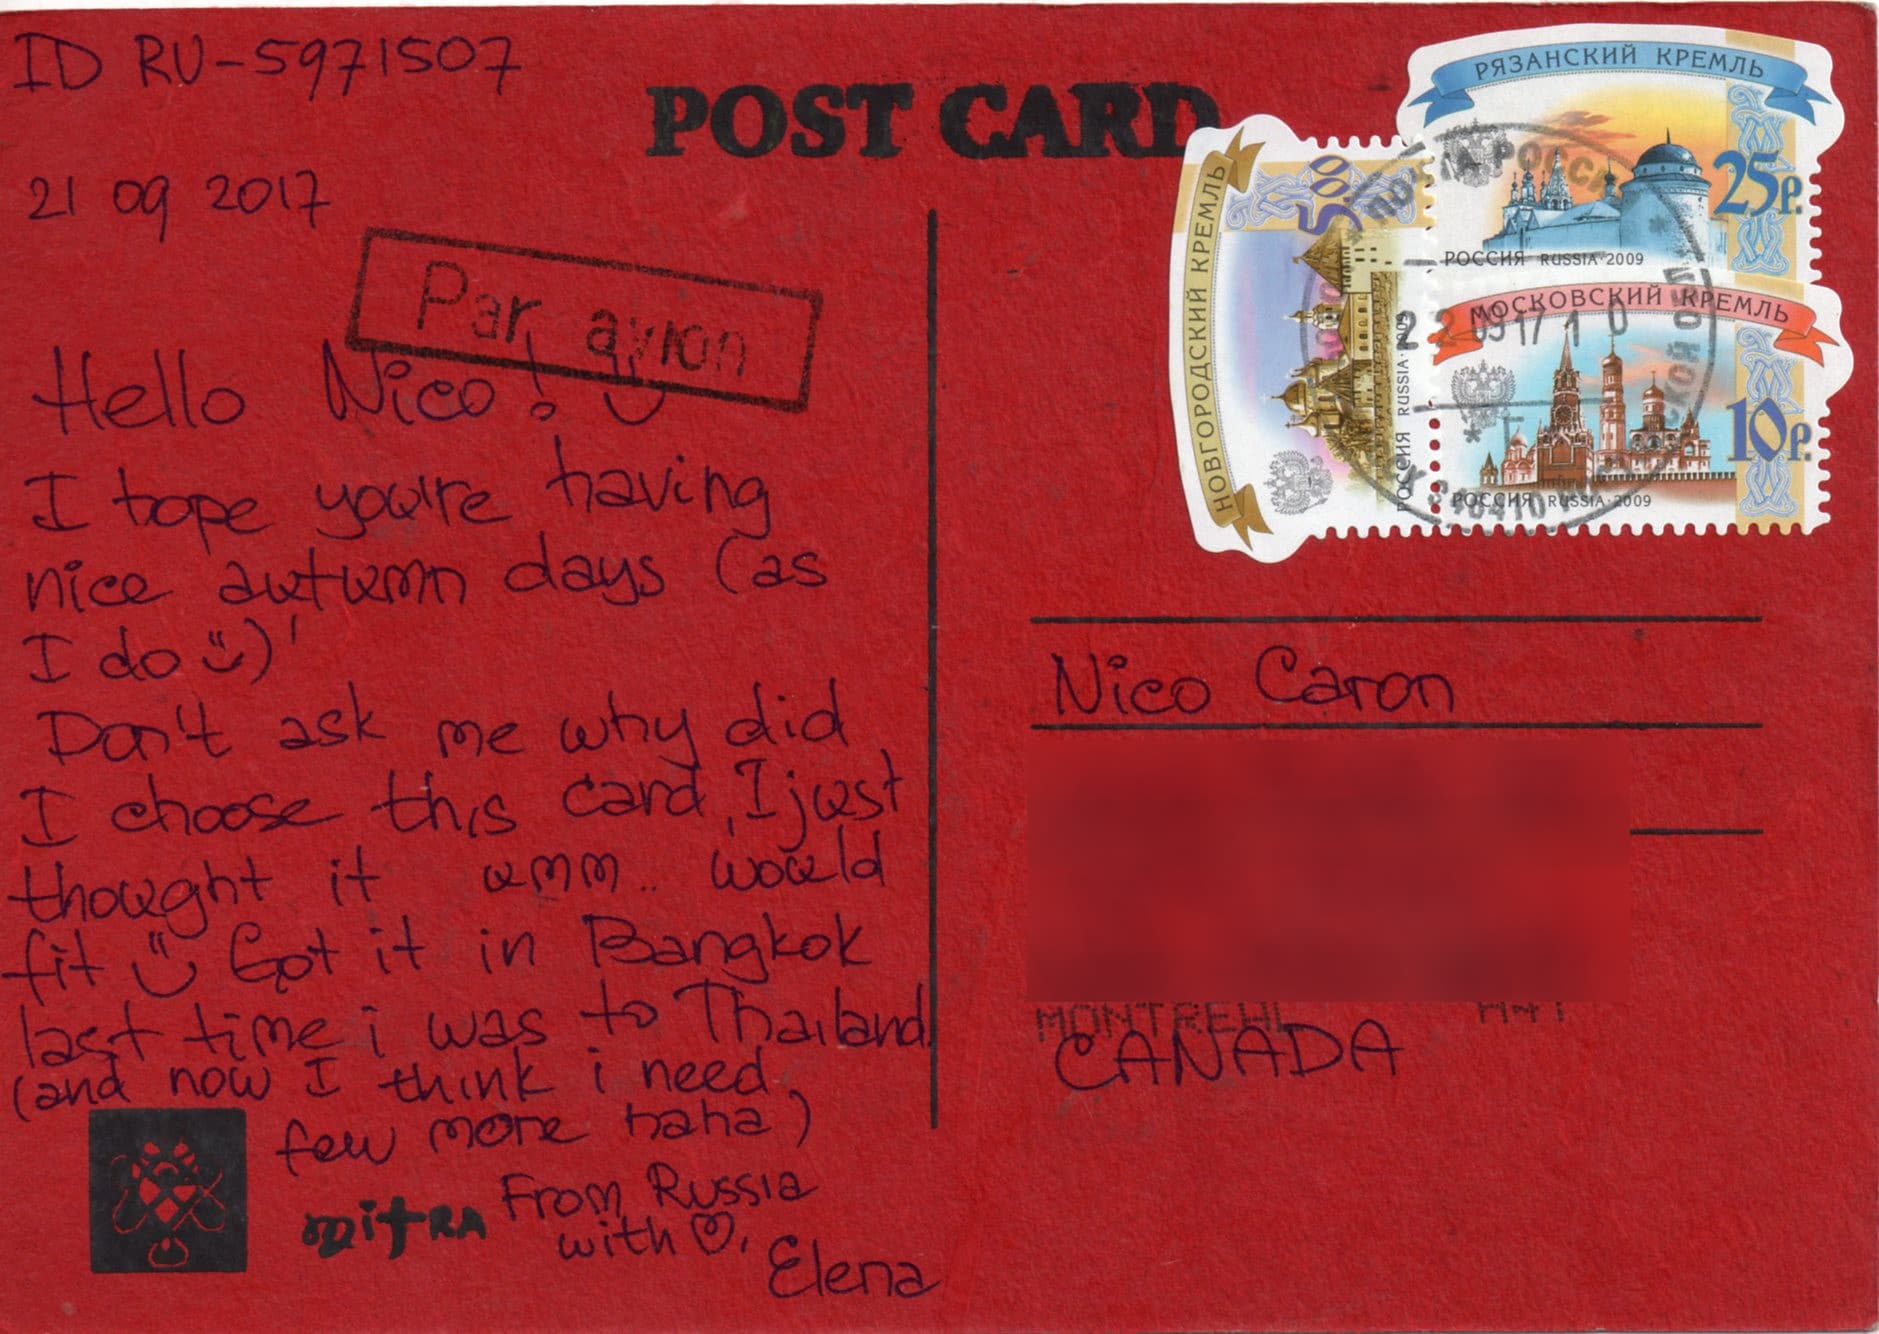 ID RU-5971507
POST CARD
21 09 2017
Par avion
Hello Nico!
I hope you're having
nice autumn days (as
I do )
Don't ask me why did
I choose this card, I just
thought it umm.. would
fit Got it in Bangkok
last time i was to Thailand
(and now I think i need
few more haha)
From Russia
with ♡,
Elena
mitRA
РЯЗАНСКИЙ КРЕМЛЬ
25р.
РОССИЯ RUSSIA·2009
НОВГОРОДСКИЙ КРЕМЛЬ
500
РОССИЯ RUSSIA·2009
МОСКОВСКИЙ КРЕМЛЬ
10р.
РОССИЯ RUSSIA·2009
ПОЧТА РОССИИ
Nico Caron
MONTREAL
CANADA